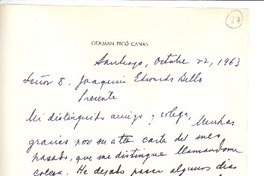 27
GERMAN PICÓ CAÑAS
Santiago, Octubre 22, 1963
Señor D. Joaquín Edwards Bello
Presente
Mi distinguido amigo y colega, Muchas
gracias por su atta carta del mes
pasado, que me distingue llamándome
colega. He dejado pasar algunos días